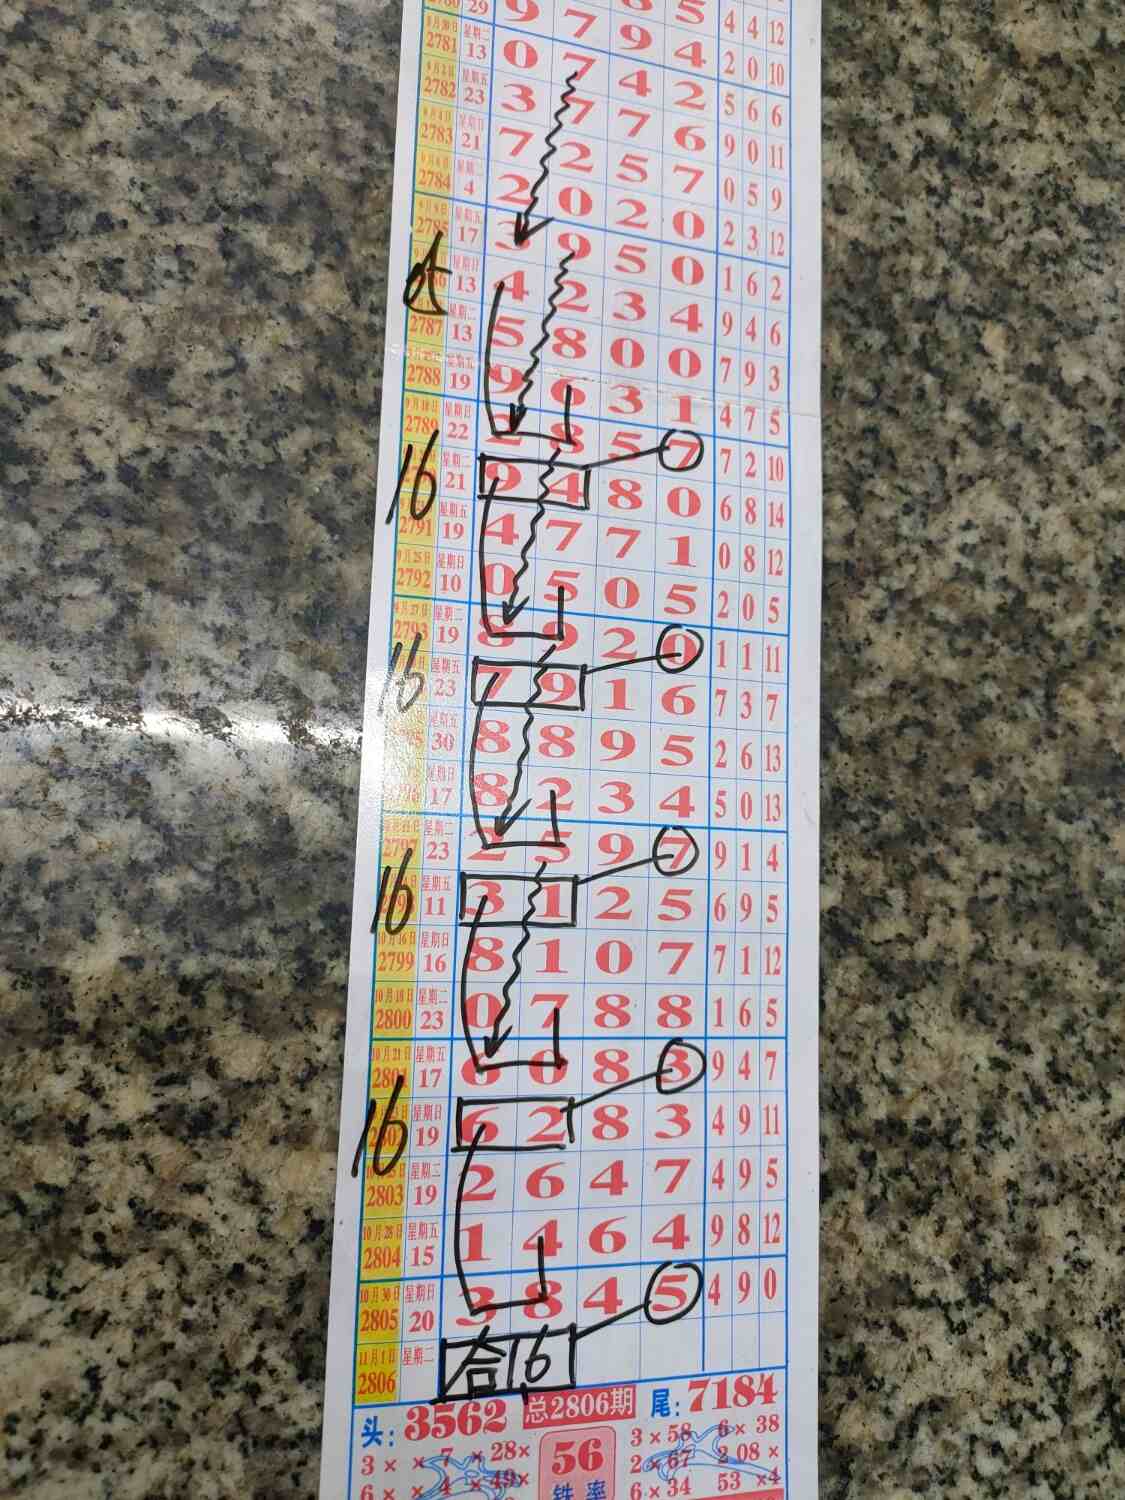 29 9 7 8 5 4 4 12
8月30日 星期二
2781 13 0 7 9 4 2 0 10
星期五
2782 23 3 7 4 2 5 6 6
9月4日 星期日
2783 21 7 2 7 6 9 0 11
9月6日 星期二
2784 4 2 0 5 7 0 5 9
9月9日 星期五
2785 17 3 9 2 0 2 3 12
星期日
13 4 2 5 0 1 6 2
星期二
2787 13 5 8 3 4 9 4 6
星期五
2788 19 9 6 0 0 7 9 3
9月18日 星期日
2789 22 2 8 3 1 4 7 5
16 星期二
21 9 4 5 7 7 2 10
星期五
2791 19 4 7 8 0 6 8 14
9月25日 星期日
2792 10 0 5 7 1 0 8 12
9月27日 星期二
2793 19 8 9 0 5 2 0 5
16 星期五
23 7 9 2 0 1 1 11
星期五
30 8 8 1 6 7 3 7
星期日
17 8 2 9 5 2 6 13
星期二
2797 23 2 5 3 4 5 0 13
16 星期五
11 3 1 9 7 9 1 4
10月16日 星期日
2799 16 8 1 2 5 6 9 5
10月18日 星期二
2800 23 0 7 0 7 7 1 12
10月21日 星期五
2801 17 6 0 8 8 1 6 5
16 星期日
2802 19 6 2 8 3 9 4 7
星期二
2803 19 2 6 8 3 4 9 11
10月28日 星期五
2804 15 1 4 4 7 4 9 5
10月30日 星期日
2805 20 3 8 6 4 9 8 12
4 5 4 9 0
11月1日 星期二
2806 合16
头: 3562 总2806期 尾: 7184
3 × × 7 × 28× 56 3×58 6×38
6 × × 4 × 49× 2×67 2 08 ×
铁率 6×34 53 ×4